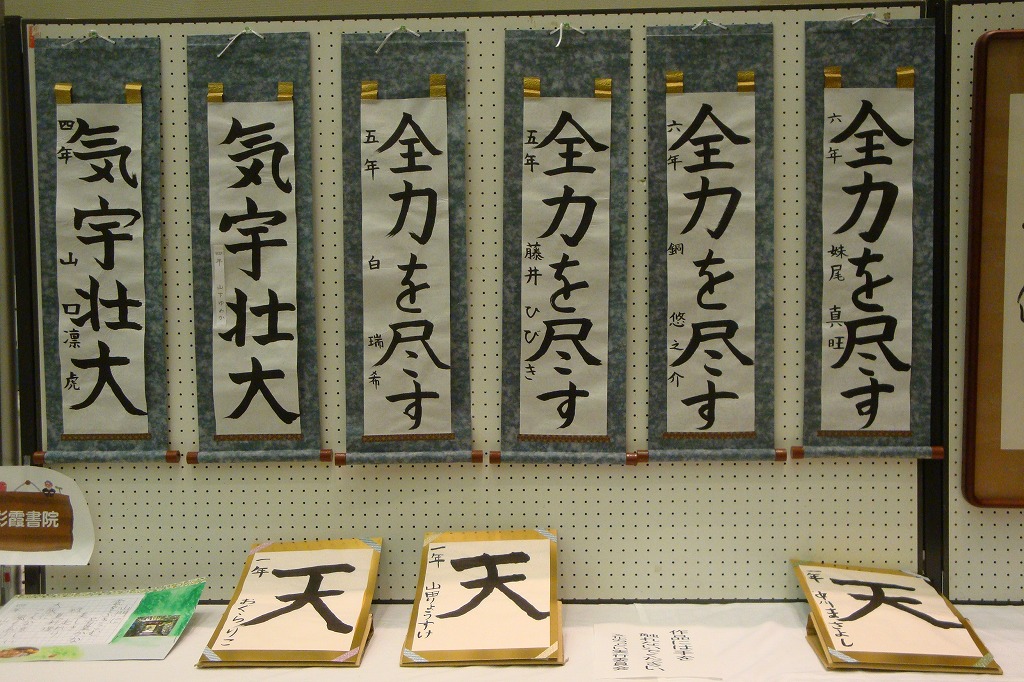 気宇壮大
四年
山口凛虎
気宇壮大
全力を尽す
五年
白
瑞希
全力を尽す
五年
藤井ひびき
全力を尽す
六年
鋼
悠之介
全力を尽す
六年
妹尾
真旺
彩霞書院
天
一年
おぐらりこ
天
一年
山田りょうすけ
天
一年
作品に手を